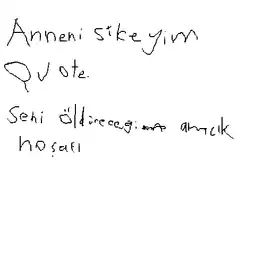 Anneni sikeyim
Quote.
Seni öldireceğim amcık
hoşafı